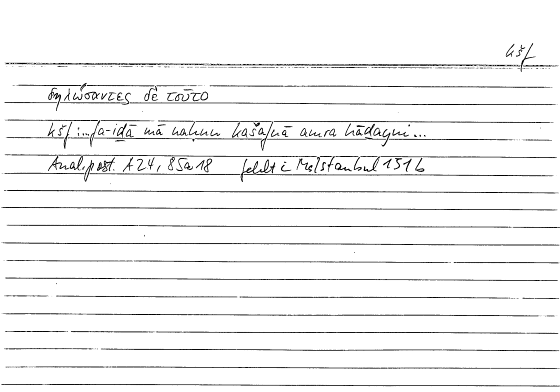 kšf
δηλώσαντες δὲ τοῦτο
kšf: ...fa-iḏā mā naḥnu kašafnā amra hāḏayni...
Anal. post. A 24, 85a18 fehlt i Ms Istanbul 1516